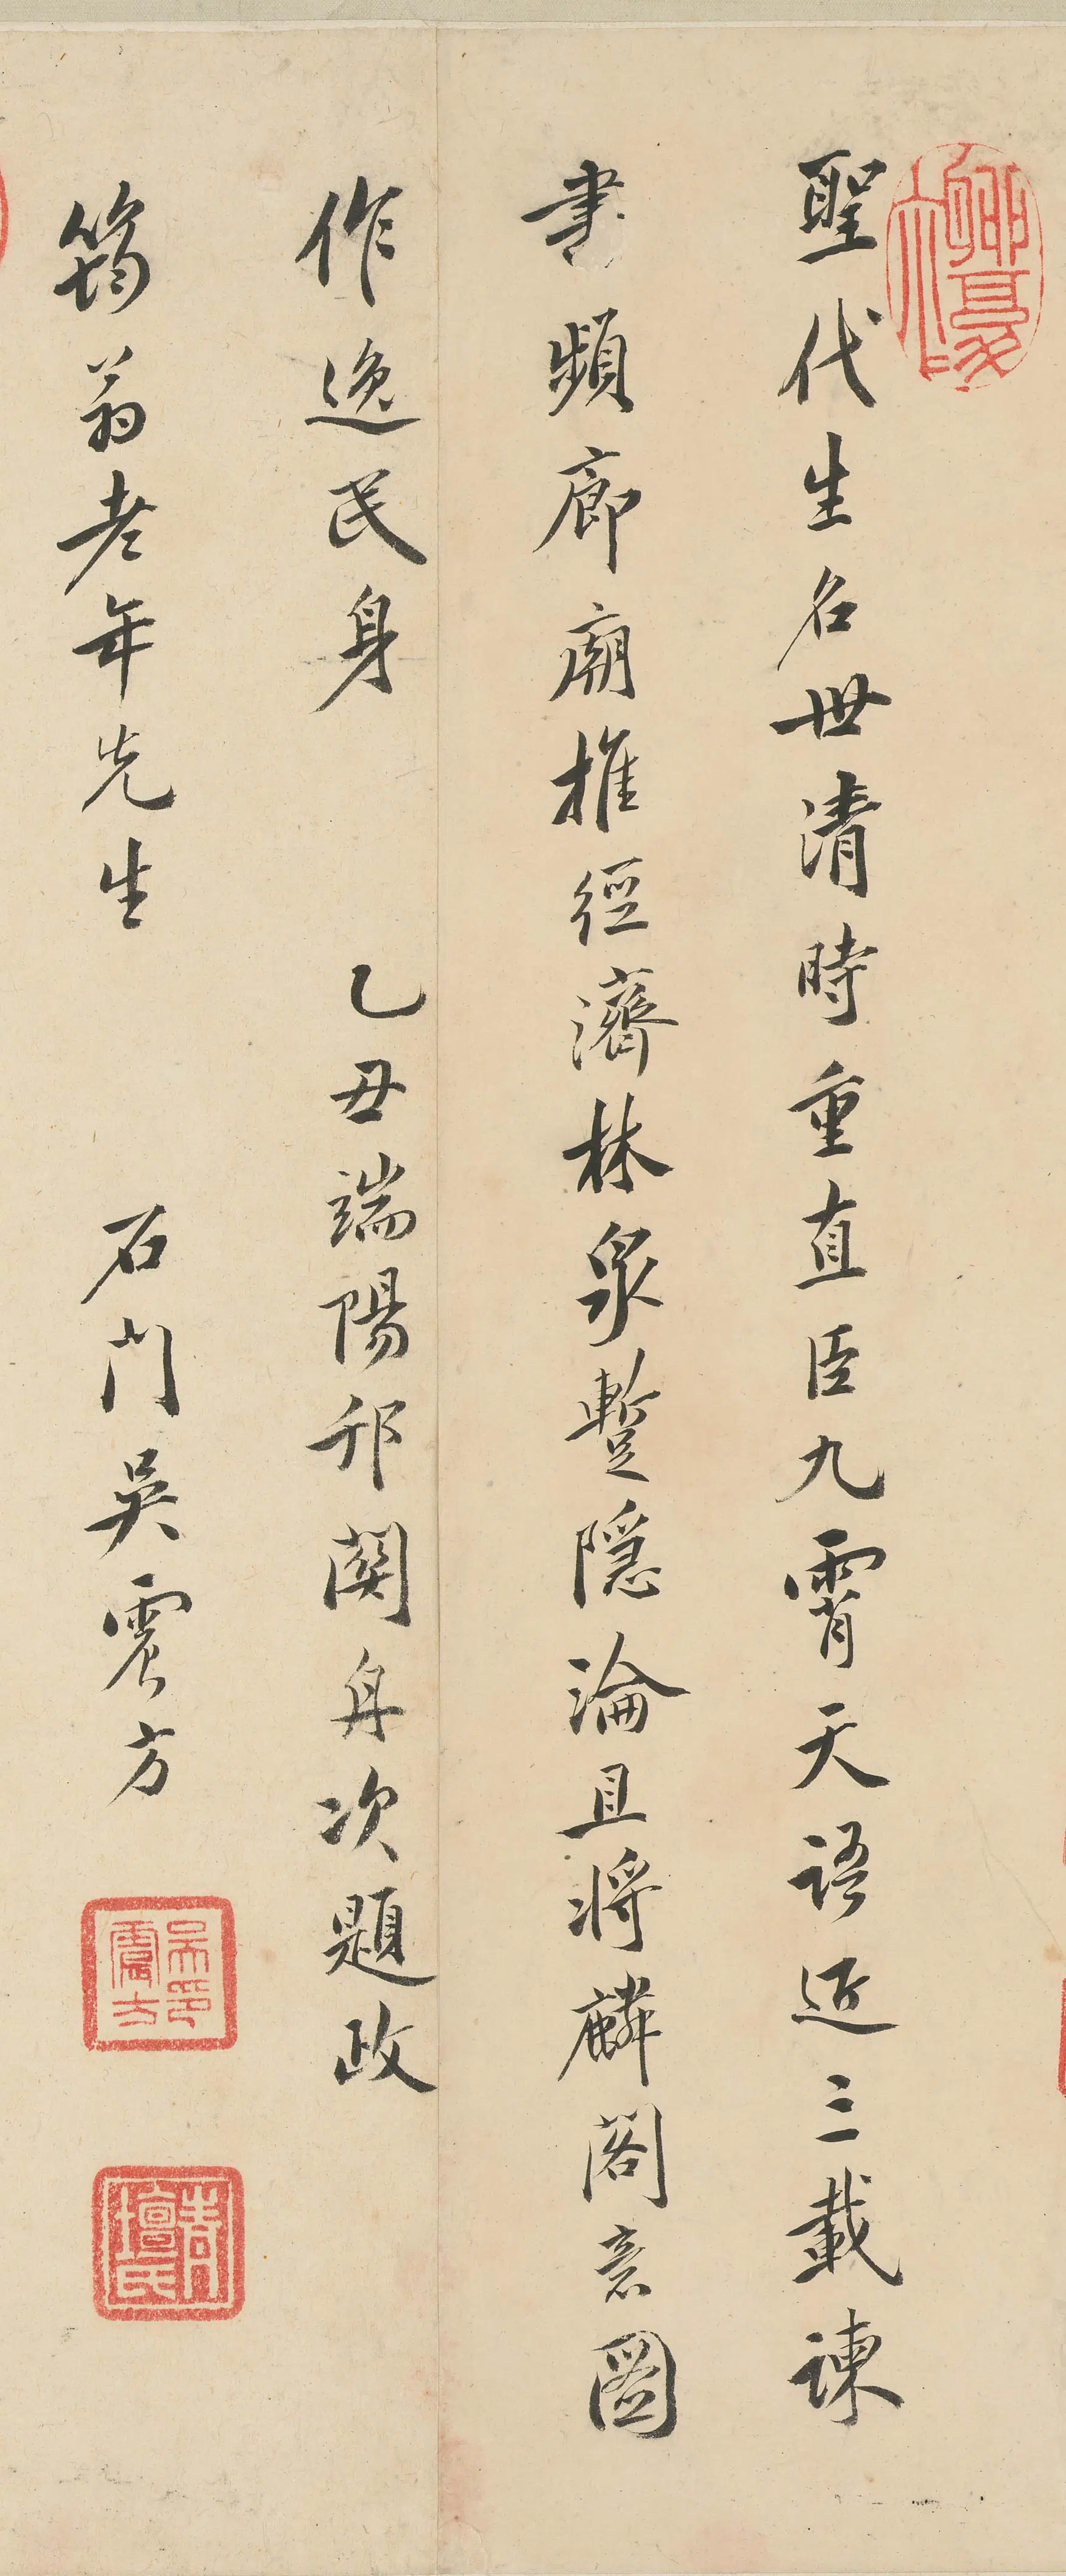 聖代生名世清時重直臣九霄天語近三載諫
書頻廊廟推經濟林泉暫隱淪且將麟閣意圖
作逸民身 乙丑端陽邗關舟次題政
筠翁老年先生 石門吳震方
吳震方印